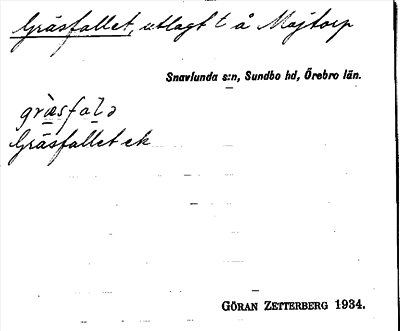 Gräsfallet, utlagt t å Majtorp
Snavlunda s:n, Sundbo hd, Örebro län.
græsfalə
Gräsfallet ek
GÖRAN ZETTERBERG 1934.